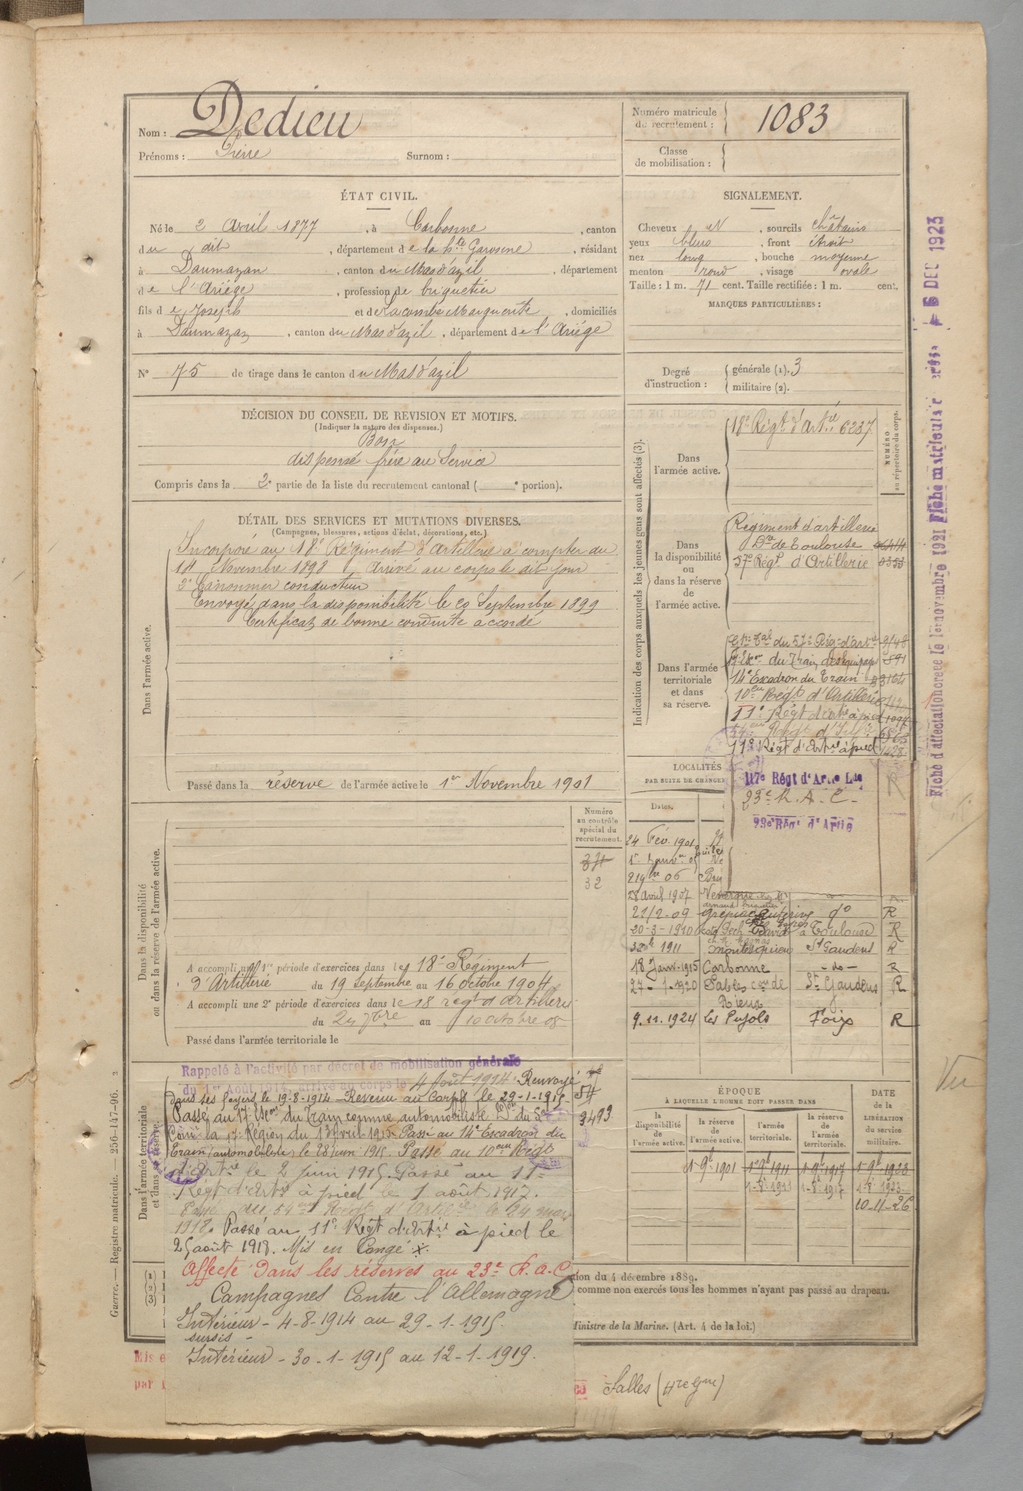 Nom : Dedieu
Prénoms : Pierre Surnom :
Numéro matricule du recrutement : 1083
Classe de mobilisation :
ÉTAT CIVIL.
Né le 2 Avril 1877, à Carbonne, canton
du dit, département de la hte Garonne, résidant
à Daumazan, canton du Mas d'azil, département
de l'Ariège, profession de briquetier
fils de Joseph et de Lacombe Marguerite, domiciliés
à Daumazan, canton du Mas d'azil, département de l'Ariège
N° 75 de tirage dans le canton du Mas d'azil
SIGNALEMENT.
Cheveux N, sourcils châtains
yeux bleus, front étroit
nez long, bouche moyenne
menton rond, visage ovale
Taille : 1 m. 71 cent. Taille rectifiée : 1 m. cent.
MARQUES PARTICULIÈRES :
Degré d'instruction : générale (1). 3
militaire (2).
DÉCISION DU CONSEIL DE RÉVISION ET MOTIFS.
(Indiquer la nature des dispenses.)
Bon
dispensé frère au Service
Compris dans la 2e partie de la liste du recrutement cantonal ( e portion).
DÉTAIL DES SERVICES ET MUTATIONS DIVERSES.
(Campagnes, blessures, actions d'éclat, décorations, etc.)
Dans l'armée active.
Incorporé au 18e Régiment d'artillerie à compter du
14 Novembre 1898 Arrivé au corps le dit jour
2e Canonnier conducteur
Envoyé dans la disponibilité le 20 Septembre 1899
Certificat de bonne conduite accordé
Passé dans la réserve de l'armée active le 1er Novembre 1901
Indication des corps auxquels les jeunes gens sont affectés (3).
NUMÉRO au répertoire du corps.
Dans l'armée active.
18e Régt d'Artie 6237
Dans la disponibilité ou dans la réserve de l'armée active.
Régiment d'artillerie
Don de Toulouse
57e Régt d'Artillerie
Dans l'armée territoriale et dans sa réserve.
du 57e Rég. d'artie
du Train des équipages
14e Escadron du Train
10e Régt d'Artillerie
11e Régt d'artie à pied
11e Régt d'artie à pied
117e Régt d'Artie Lde
23e R.A.C.
LOCALITÉS
PAR SUITE DE CHANGE
Dates.
24 Fév. 1901
28 avril 1907
22/2-09 d° R
20-3-1910 à Toulouse R
1911 Montesquieu St Gaudens R
18 Janv. 1915 Carbonne -do- R
27-1-1920 Salles cton de Rieux St Gaudens R
9.11.1924 Les Pujols Foix R
Numéro au contrôle spécial du recrutement.
32
Dans la disponibilité ou dans la réserve de l'armée active.
A accompli une 1re période d'exercices dans le 18e Régiment
d'Artillerie du 19 septembre au 16 octobre 1904
A accompli une 2e période d'exercices dans le 18 régt d'artillerie
du au
Passé dans l'armée territoriale le
Dans l'armée territoriale et dans sa réserve.
Rappelé à l'activité par décret de mobilisation générale
du 1er Août 1914, arrivé au corps le 4 Août 1914. Renvoyé
dans ses foyers le 19-8-1914 - Revenu au Corps le 29-1-1915
Passé au 17e Escon du Train comme automobiliste
la 17e Région du 13 Avril 1915 Passé au 14e Escadron du
Train (automobiliste) le 28 juin 1915. Passé au 10eme Régt
d'Artie le 2 juin 1915. Passé au 11e
Régt d'Artie à pied le 1 août 1917.
Passé au 54e Régt d'Artie le 24 mars
1918. Passé au 11e Régt d'Artie à pied le
25 août 1918. Mis en Congé
Affecté dans les réserves au 23e R.A.C
Campagnes Contre l'Allemagne
Intérieur - 4-8-1914 au 29-1-1915
sursis -
Intérieur - 30-1-1915 au 12-1-1919.
54
3493
ÉPOQUE
À LAQUELLE L'HOMME DOIT PASSER DANS
la disponibilité de l'armée active.
la réserve de l'armée active.
l'armée territoriale.
la réserve de l'armée territoriale.
DATE de la LIBÉRATION DU SERVICE militaire.
1-9bre 1901 1-9bre 1911 1-9bre 1917 1-9bre 1923
10-11-26
tion du 4 décembre 1889.
comme non exercés tous les hommes n'ayant pas passé au drapeau.
Ministre de la Marine. (Art. 4 de la loi.)
Salles (Hte Gne)
Guerre. — Registre matricule. — 256-147-96.
Fiche d'affectation créée le 1er novembre 1921 Fiche matriculaire créée - 5 DEC 1923
Vu